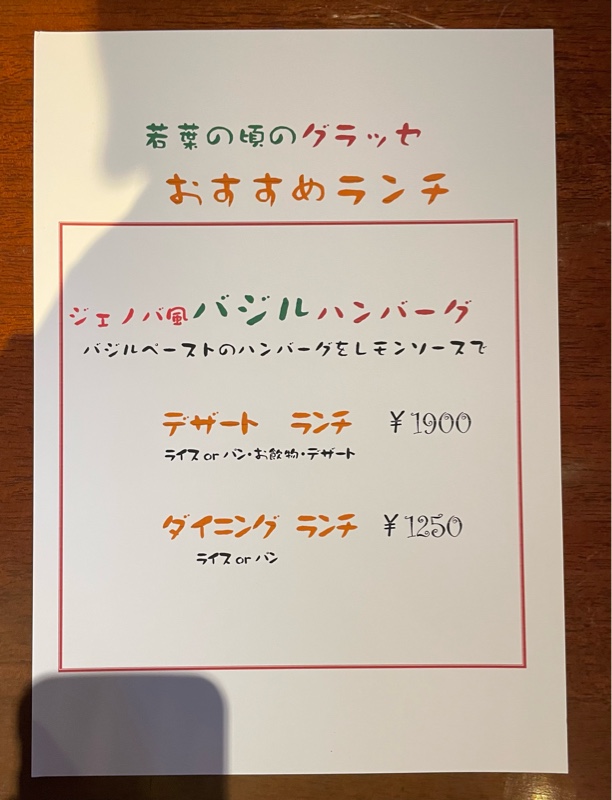 若葉の頃のグラッセ
おすすめランチ
ジェノバ風バジルハンバーグ
バジルペーストのハンバーグをレモンソースで
デザート ランチ ¥1900
ライス or パン・お飲物・デザート
ダイニング ランチ ¥1250
ライス or パン